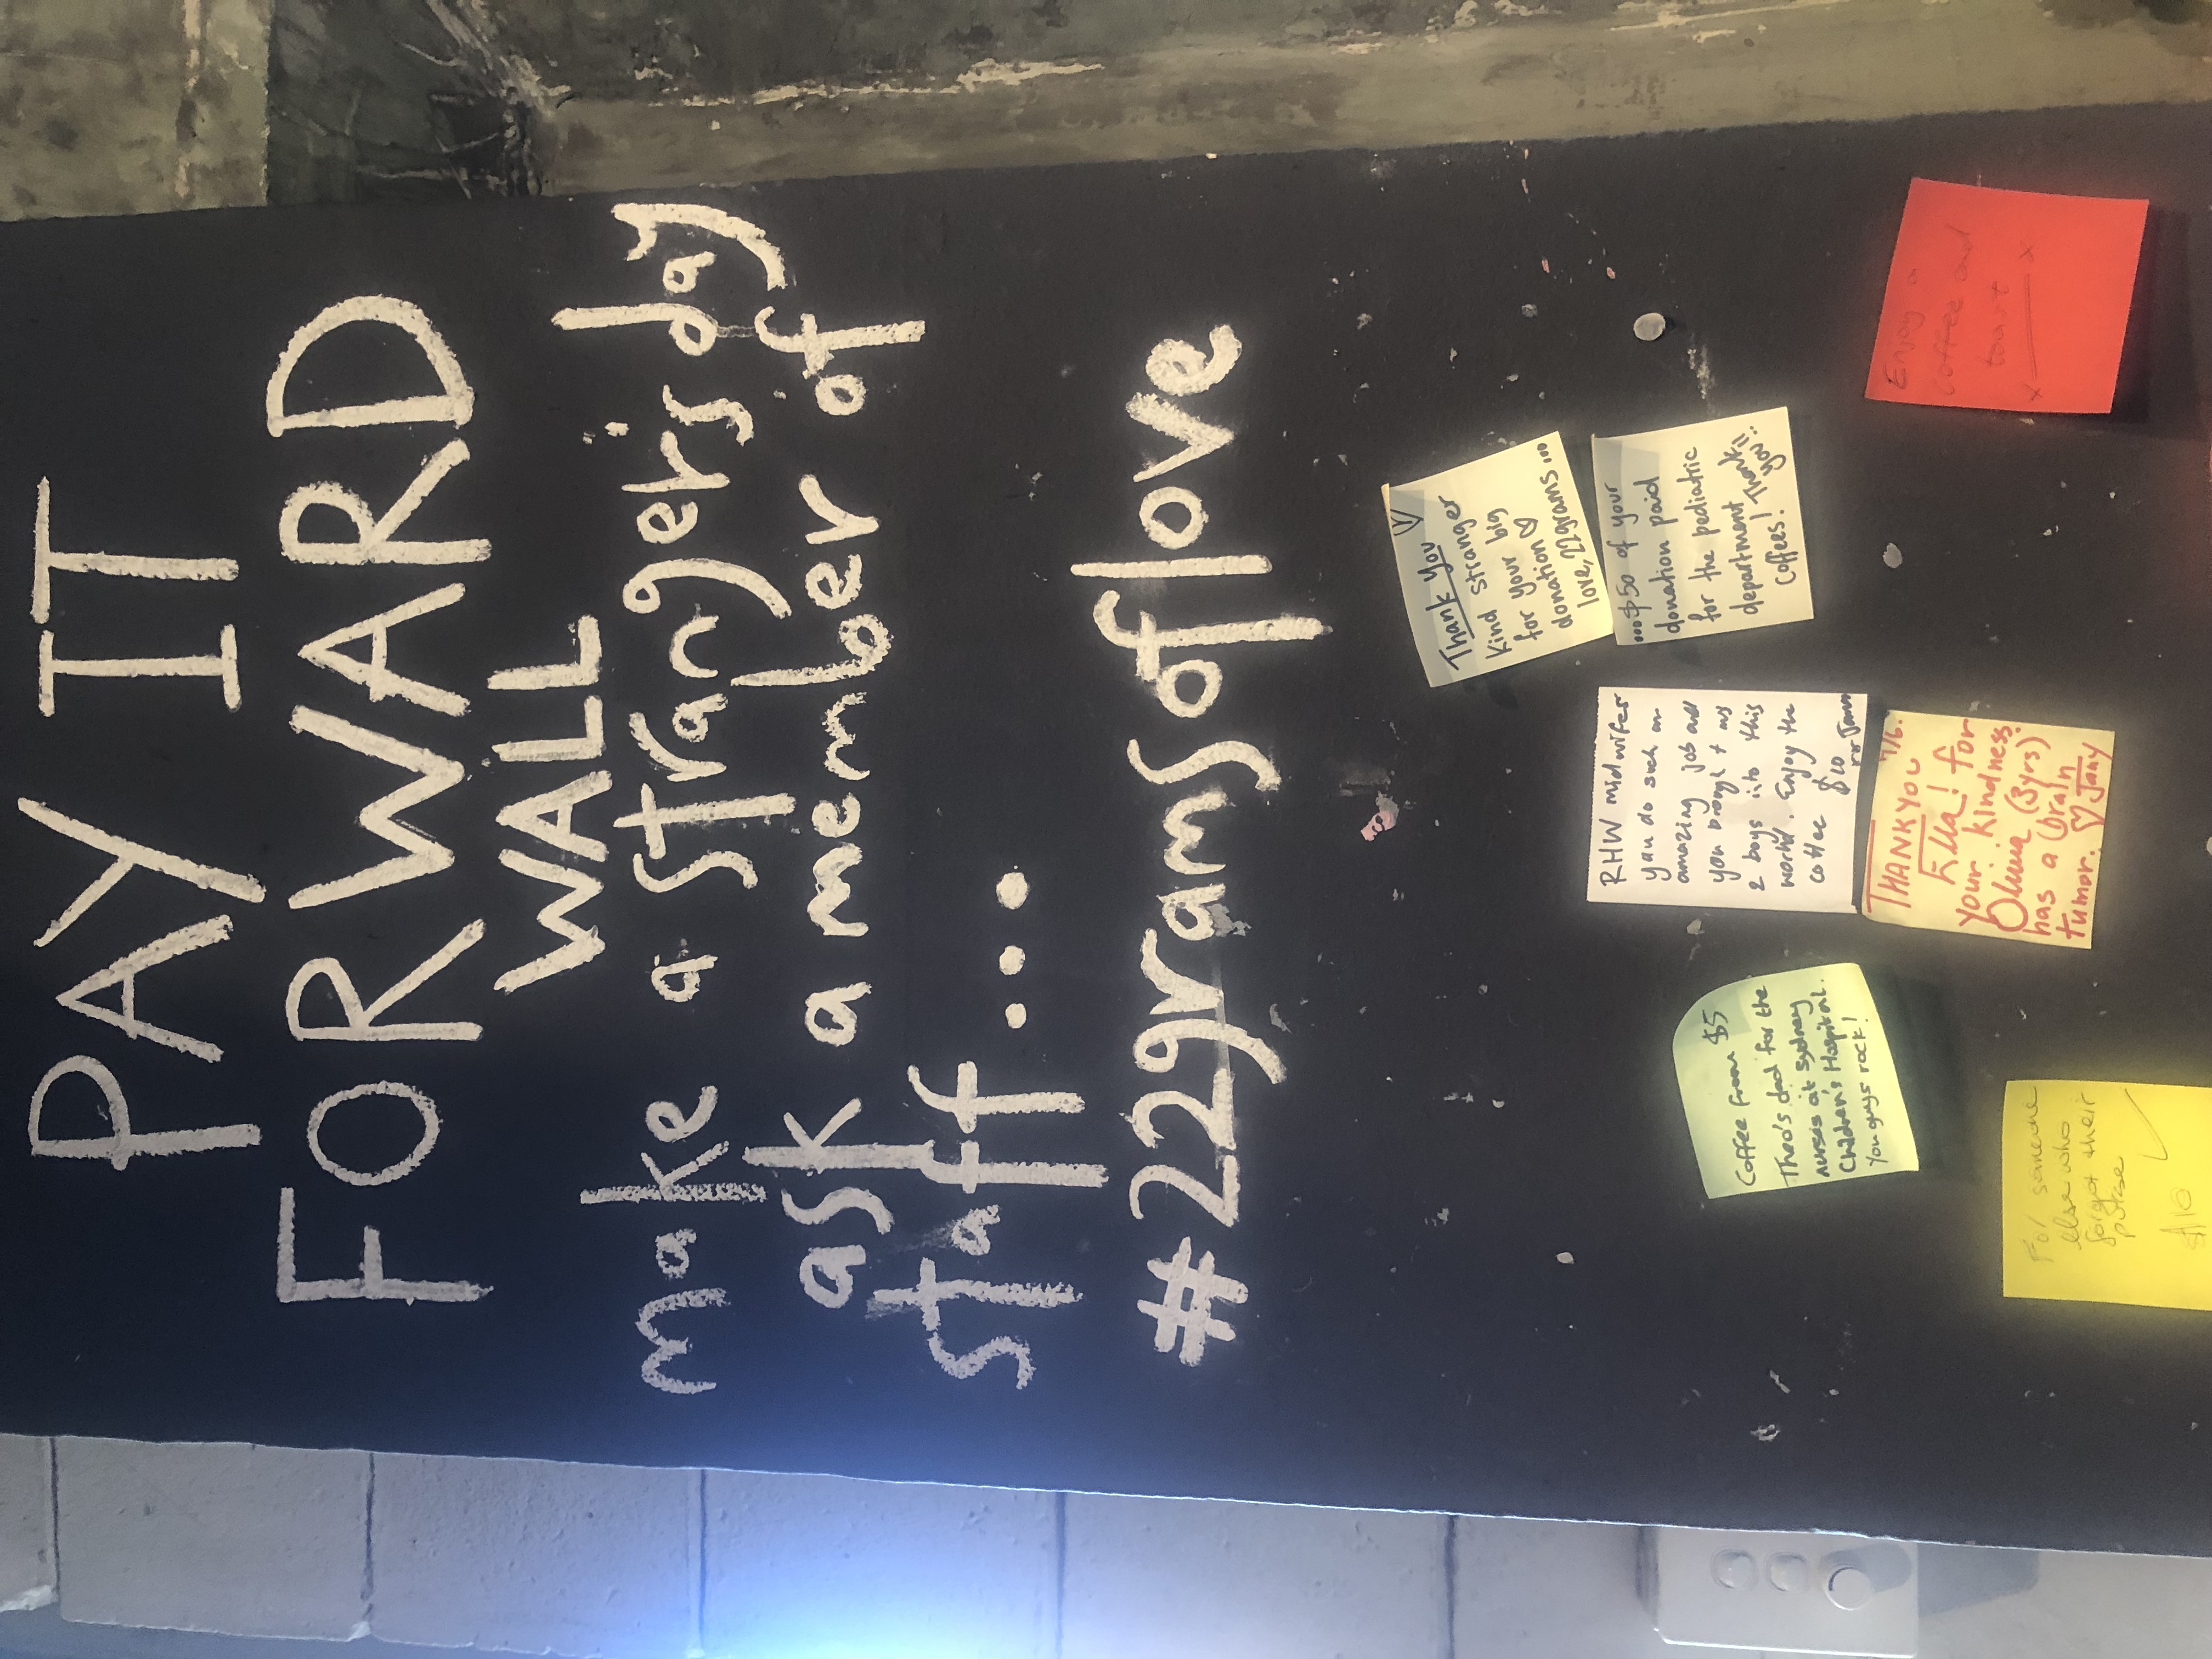 PAY IT
FORWARD
WALL
make a stranger's day
ask a member of
staff...
#22gramsoflove
Thank You
kind stranger
for your big
donation ♡
love, 22grams...
...$50 of your
donation paid
for the pediatric
department
coffees! Thank
you!!
RHW midwifes
you do such an
amazing job and
you brought my
2 boys into this
world. Enjoy the
coffee $10
Coffee from $5
Theo's dad for the
nurses at Sydney
Children's Hospital.
You guys rock!
THANKYOU 7/6.
Ella! for
your kindness
Olivia (3yrs)
has a brain
tumor. ♡ Jany
Enjoy a
coffee and
toast
x x
For someone
else who
forgot their
purse
$10